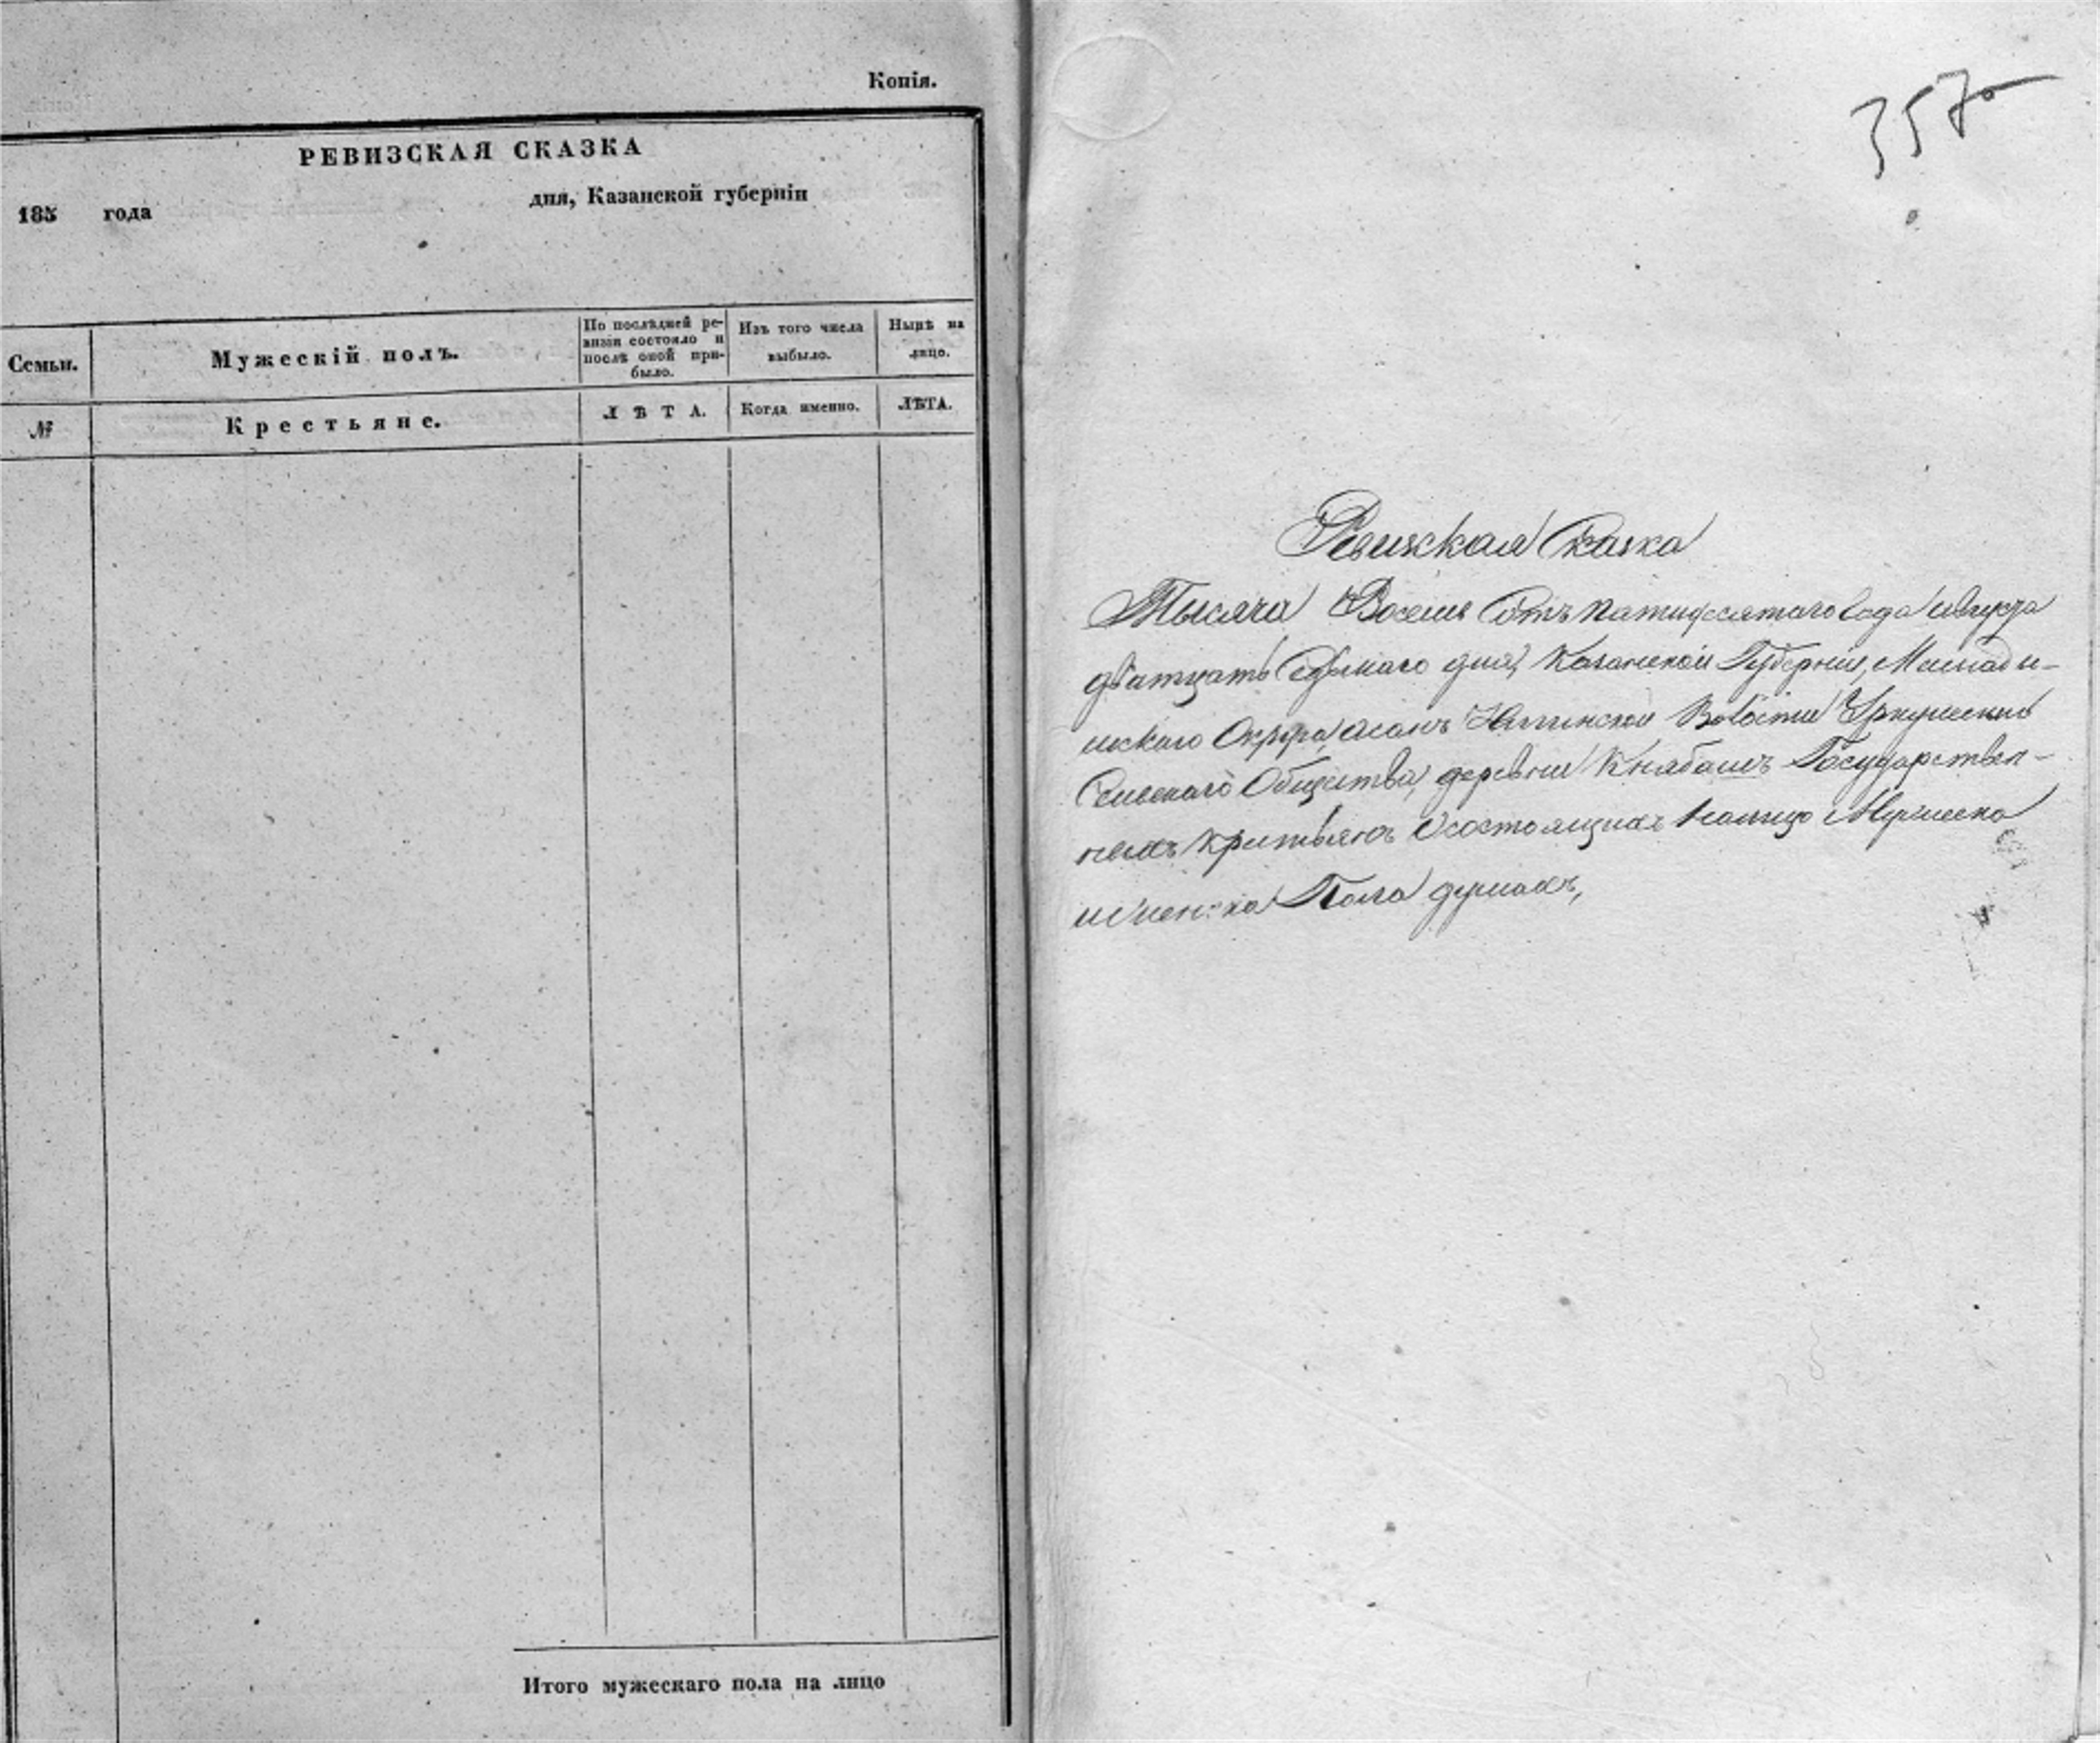 Копія.
РЕВИЗСКАЯ СКАЗКА
185 года дня, Казанской губерніи
Семьи.
Мужескій полъ.
По послѣдней ре-
визіи состояло и
послѣ оной при-
было.
Изъ того числа
выбыло.
Нынѣ на
лицо.
№
Крестьяне.
ЛѢТА.
Когда именно.
ЛѢТА.
Итого мужескаго пола на лицо
357
Ревизская Сказка
Тысяча Восемь Сотъ пятидесятаго Года августа
дватцать Седмаго дня, Казанской Губерніи, Мамады-
шскаго Округа, Волости
Сельскаго Общества, деревни Княбашъ Государствен-
ныхъ крестьянъ О состоящихъ налицо Мужеска
и женска Пола душахъ,